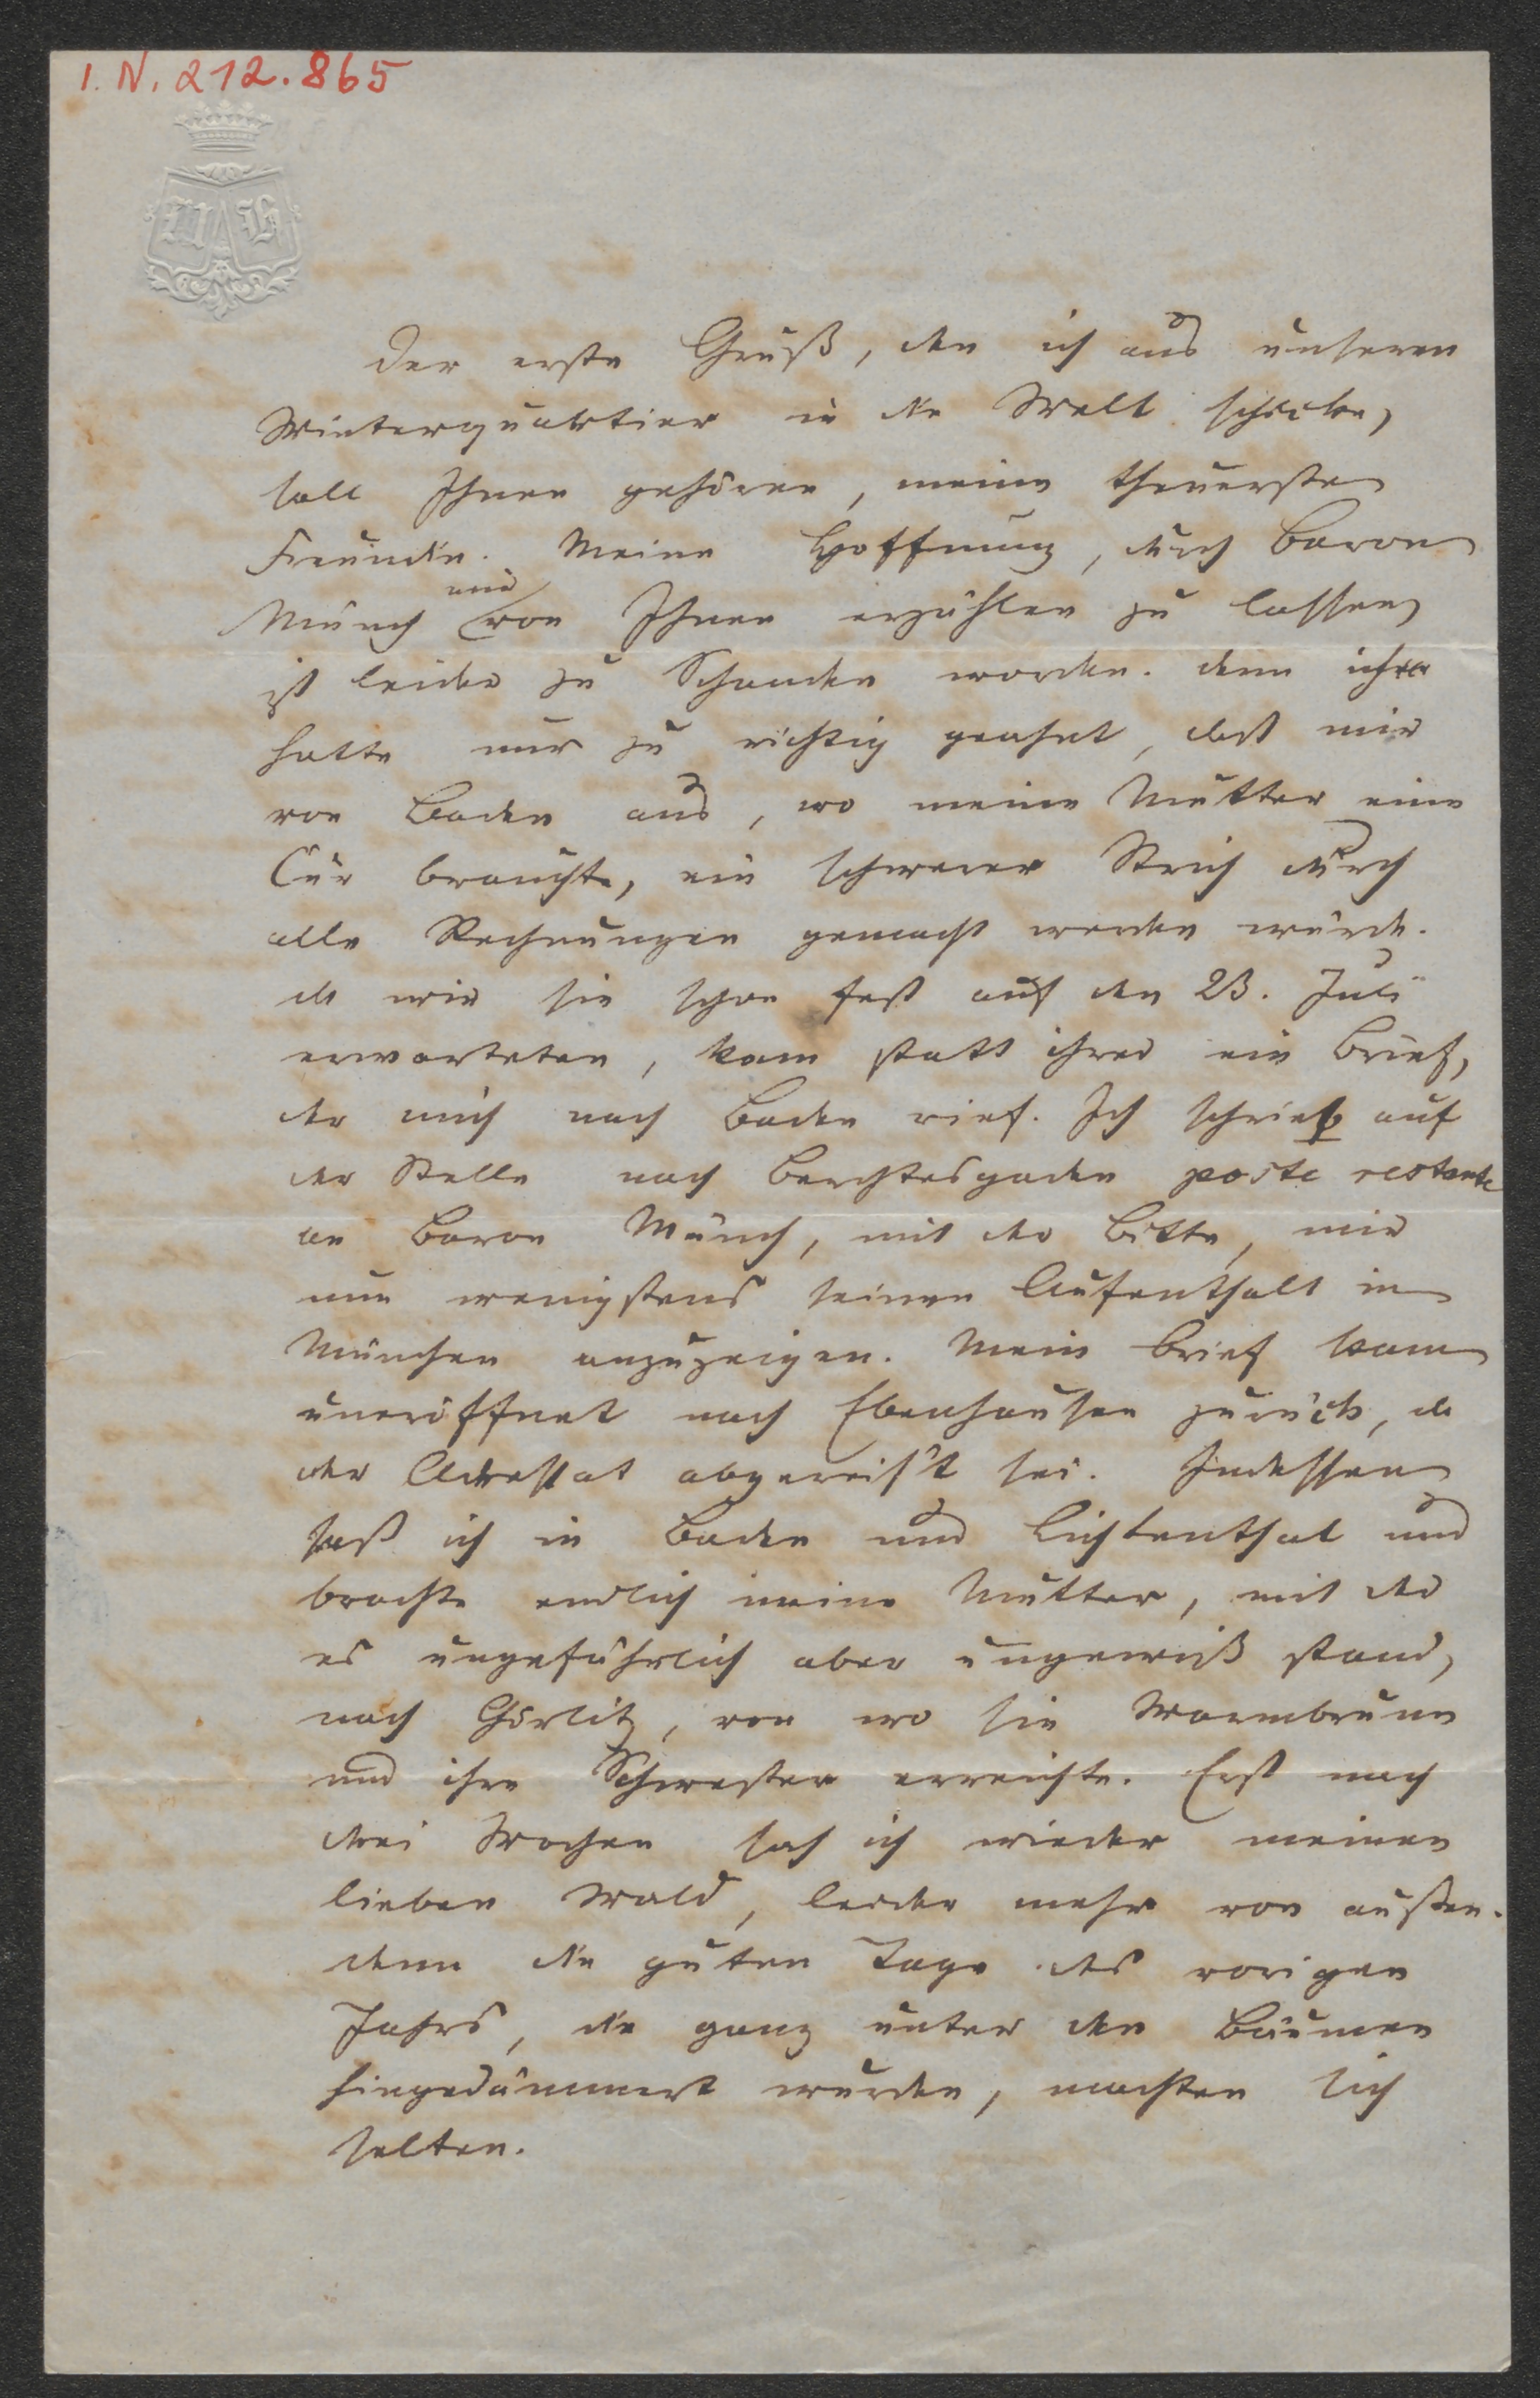 I. N. 212.865
Der erste Gruß, den ich aus unserem
Winterquartier in die Welt schicke,
soll Ihnen gehören, meine theuerste
Freundin. Meine Hoffnung, durch Baron
mir
Münch von Ihnen erzählen zu lassen,
ist leider zu Schanden worden. Denn ich
hatte nur zu richtig geahnt, daß mir
von Baden aus, wo meine Mutter eine
Cur brauchte, ein schwerer Strich durch
alle Rechnungen gemacht werden würde.
Als wir sie schon fest auf den 23. Juli
erwarteten, kam statt ihrer ein Brief,
der mich nach Baden rief. Ich schrieb auf
der Stelle nach Berchtesgaden poste restante
an Baron Münch, mit der Bitte, mir
nun wenigstens seinen Aufenthalt in
München anzuzeigen. Mein Brief kam
uneröffnet nach Ebenhausen zurück, da
der Adressat abgereis't sei. Indessen
saß ich in Baden und Lichtenthal und
brachte endlich meine Mutter, mit der
es ungefährlich aber ungewiß stand,
nach Görlitz, von wo sie Warmbrunn
und ihre Schwester erreichte. Erst nach
drei Wochen sah ich wieder meinen
lieben Wald, leider mehr von außen.
Denn die guten Tage des vorigen
Jahrs, die ganz unter den Bäumen
hingedämmert wurden, machten sich
selten.